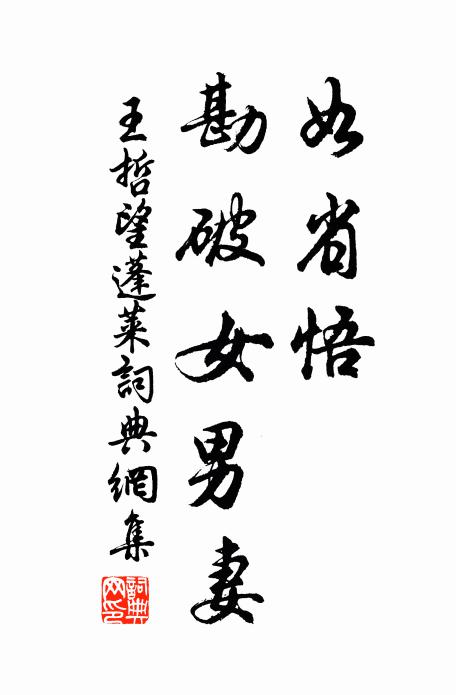 如省悟
勘破女男妻
王哲望蓬萊詞典網集
詞典網印